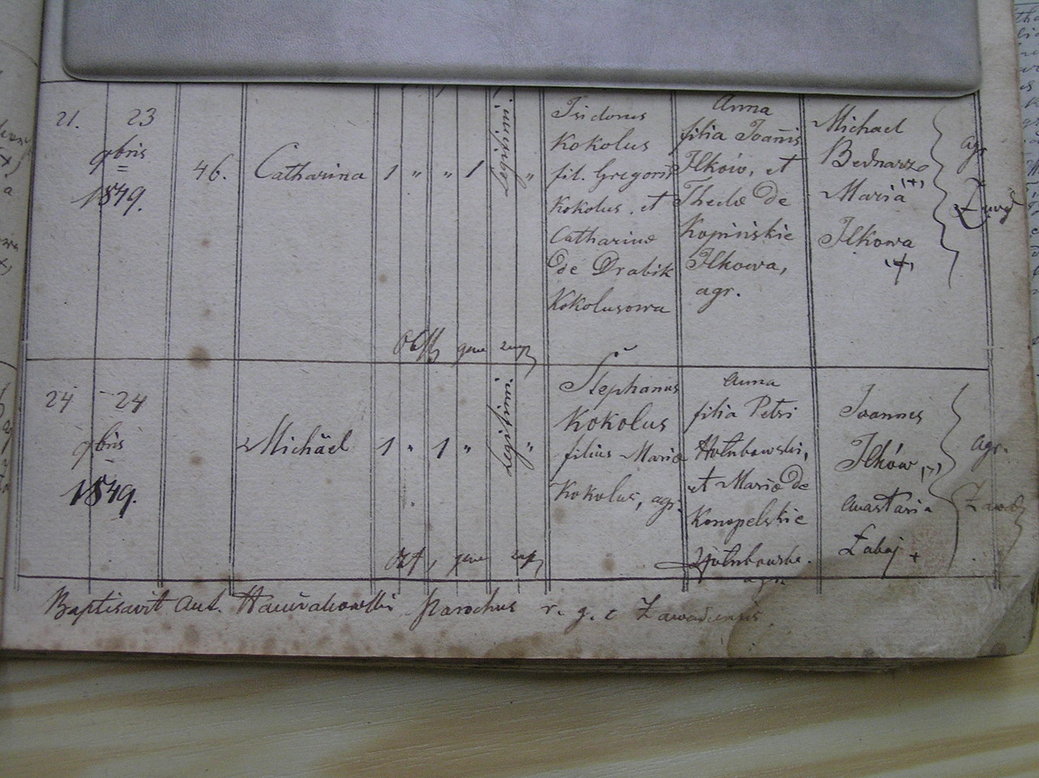 21. 23 9bris 1849. 46. Catharina 1 " " 1 Legitimi. "
Isidorus
Kokolus
fil. Gregorii
Kokolus, et
Catharinæ
de Drabik
Kokolusowa
Anna
filia Joannis
Ilków, et
Theclæ de
Kopińskie
Ilkowa,
agr.
Michael
Bednarz
(+)
Maria
Ilkowa
(+)
agr.
24 24 9bris 1849. Michäel 1 " 1 " Legitimi. "
Stephanus
Kokolus
filius Maria
Kokolus, agr.
Anna
filia Petri
Hołubowski,
et Mariæ de
Konopelskie
Hołubowska.
agr.
Joannes
Ilków,
Anastasia
Zabaj +
agr.
Baptisavit Ant. parochus r. g. c Zawadensis